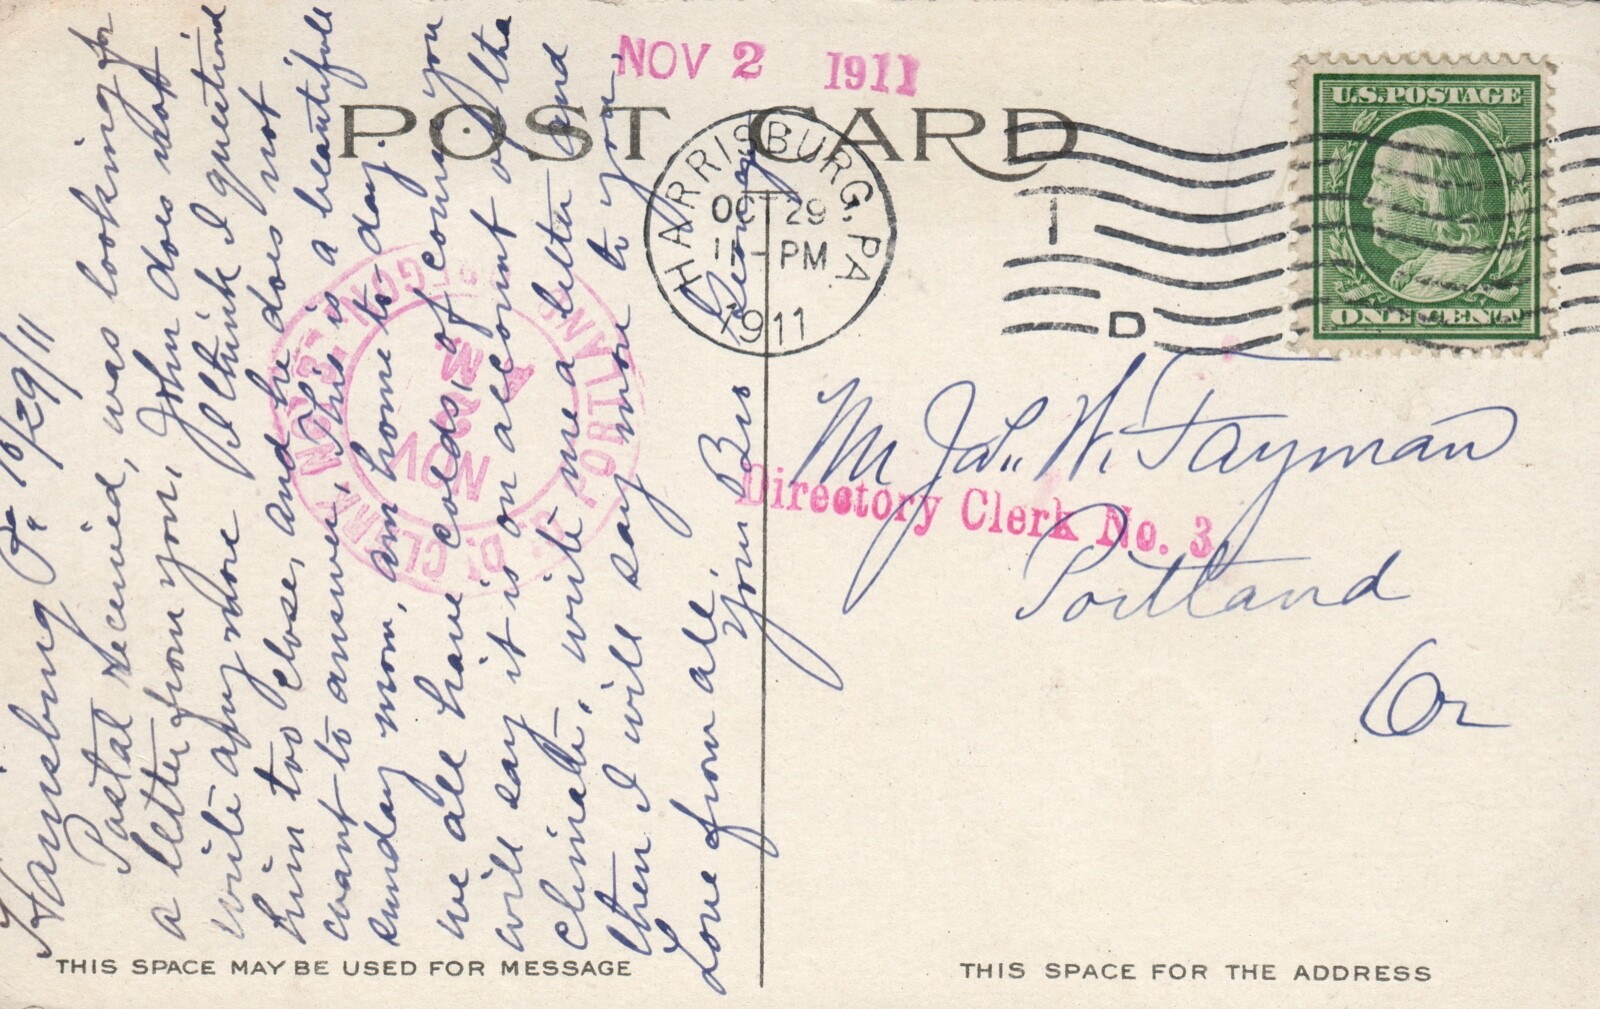 NOV 2 1911
POST CARD
U.S. POSTAGE
ONE CENT
HARRISBURG, PA.
OCT 29
PM
1911
D
Harrisburg Pa. 10/29/11
Postal received, was looking for
a letter from you, John does not
write any more I think I question
him too close, and he does not
want to answer, This is a beautiful
sunday morn, am home to day.
we all have colds, of course you
will say it is on account of the
climate, write me a letter and
then I will say more to you,
Love from all, Your Bro
George
Mr Jno. W. Fayman
Portland
Or
Directory Clerk No. 3
PORTLAND, OREGON
D. CLERK
NOV
THIS SPACE MAY BE USED FOR MESSAGE
THIS SPACE FOR THE ADDRESS